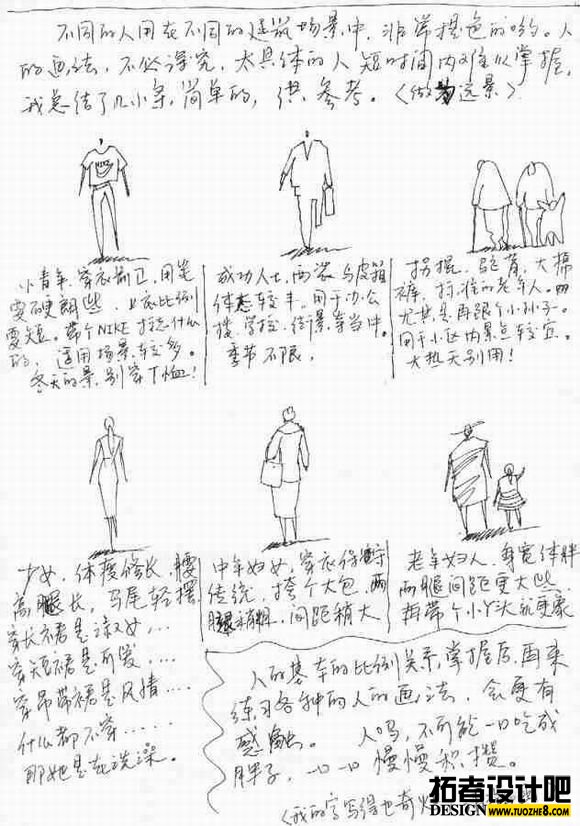 不同的人用在不同的建筑场景中,非常提色的哟。人
的画法,不必深究,太具体的人短时间内难以掌握,
我总结了几小条,简单的,供参考。(做为远景)
NIKE
小青年,穿衣前卫,用笔
要硬朗些,上衣比例
要短。带个NIKE标志什么
的,适用场景较多。
冬天的景,别穿T恤!
成功人士,西装与皮箱
体态较丰,用于办公
楼,学校,街景等当中。
季节不限,
拐棍,驼背,大棉
裤,打准的老年人。
尤其是再跟个小孙子。
用于小区内景点较宜。
大热天别用!
少女,体瘦修长,腰
高腿长,马尾轻摆
穿长裙是淑女,...
穿短裙是可爱,...
穿吊带裙是风情....
什么都不穿......
那她是在洗澡。
中年妇女,穿衣保守
传统,挎个大包,两
腿稍粗,间距稍大
老年妇人,身宽体胖
两腿间距更大些
再带个小丫头就更象
人的基本的比例关系,掌握后,再来
练习各种的人的画法,会更有
感触。 人吗,不可能一口吃成
胖子,一口一口慢慢积攒。
(我的字写得也奇
拓者设计吧
DESIGN WWW.TUOZHE8.COM